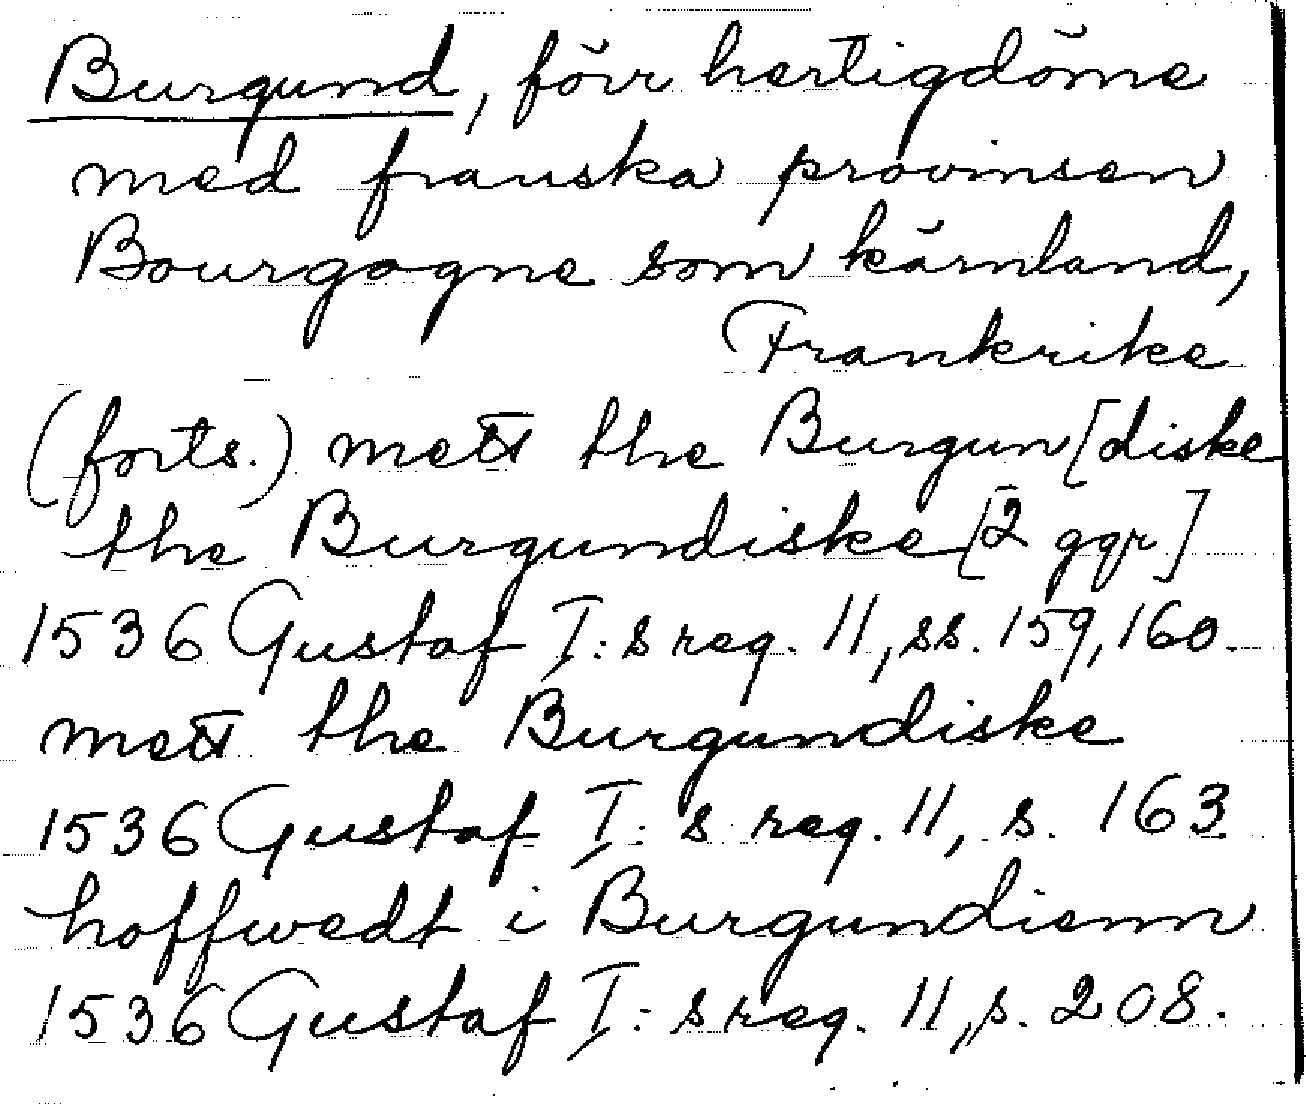 Burgund, förr hertigdöme
med franska provinsen
Bourgogne som kärnland,
Frankrike
(forts.) mett the Burgun[diske
the Burgundiske [2 ggr]
1536 Gustaf I:s reg. 11, ss. 159, 160.
mett the Burgundiske
1536 Gustaf I:s reg. 11, s. 163
hoffwedt i Burgundienn
1536 Gustaf I:s reg. 11, s. 208.